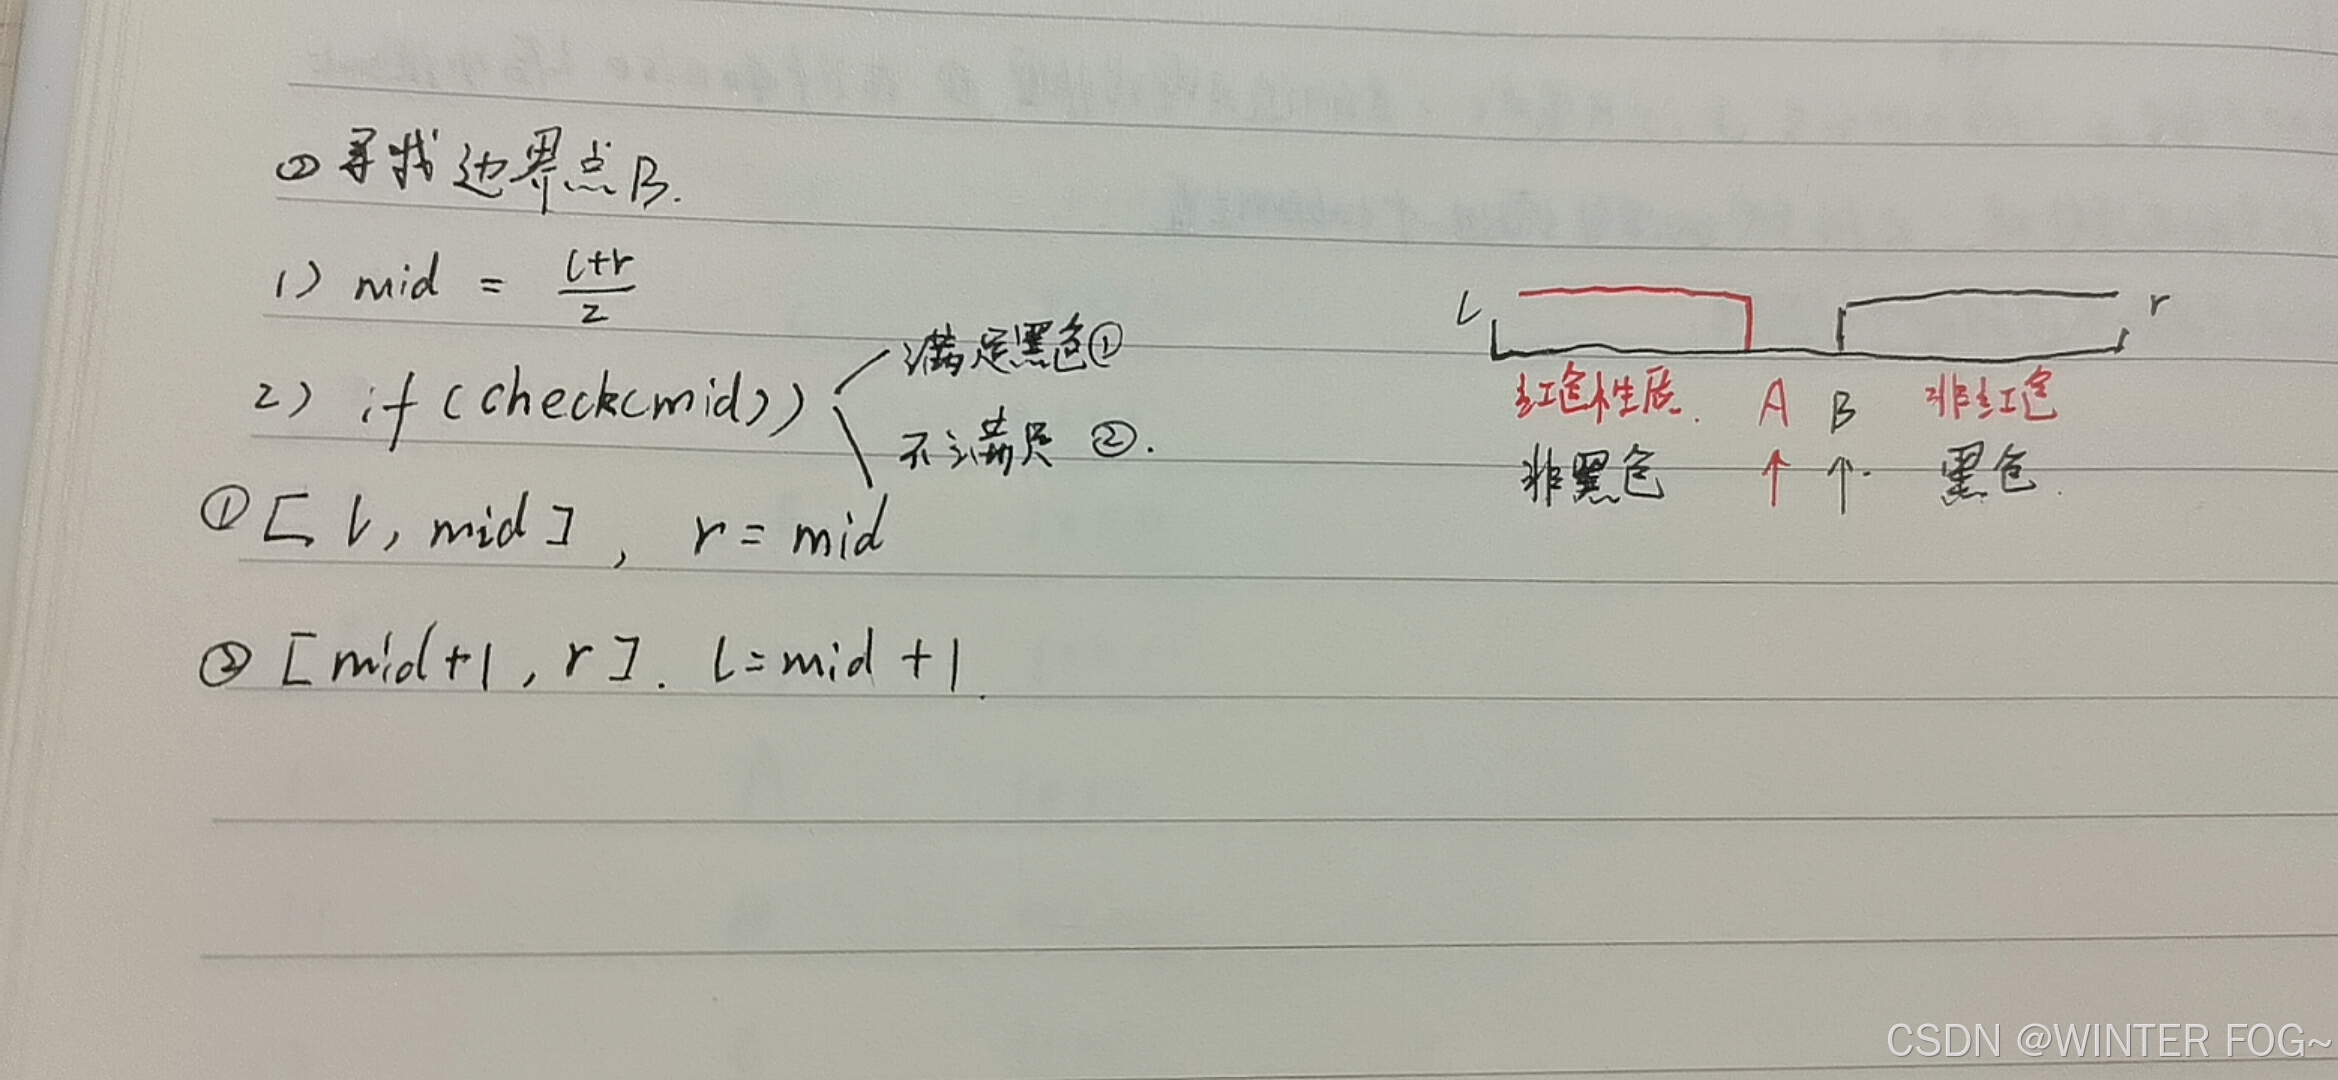 ② 寻找边界点B.
1) mid = (l+r)/2
2) if (check(mid))
满足黑色①
不满足 ②.
① [l, mid], r = mid
② [mid+1, r]. l = mid + 1.
l r
红色性质. A B 非红色
非黑色 ↑ ↑. 黑色.
CSDN @WINTER FOG~